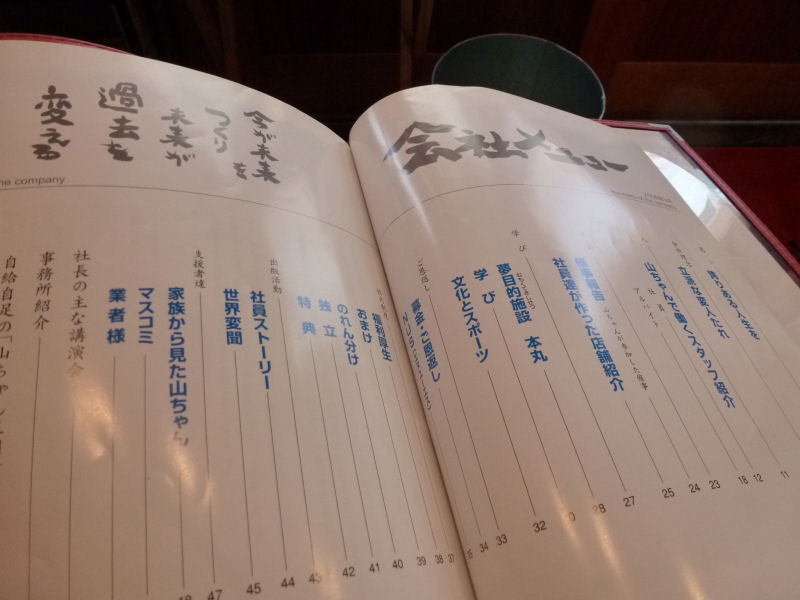 会社メニュー
誇りある人生を
立派な変人たれ
山ちゃんで働くスタッフ紹介
社員
アルバイト
催事報告
山ちゃんが参加した催事
社員達が作った店舗紹介
学び
夢目的施設 本丸
学び
文化とスポーツ
ご恩返し
募金・ご恩返し
福利厚生
おまけ
のれん分け
独立
特典
出版活動
社員ストーリー
世界変聞
支援者達
家族から見た山ちゃん
マスコミ
業者様
社長の主な講演会
事務所紹介
11
12
18
23
24
25
27
28
32
33
34
35
37
38
39
40
41
42
43
44
45
47
今が未来を
つくり
未来が
過去を
変える
the company